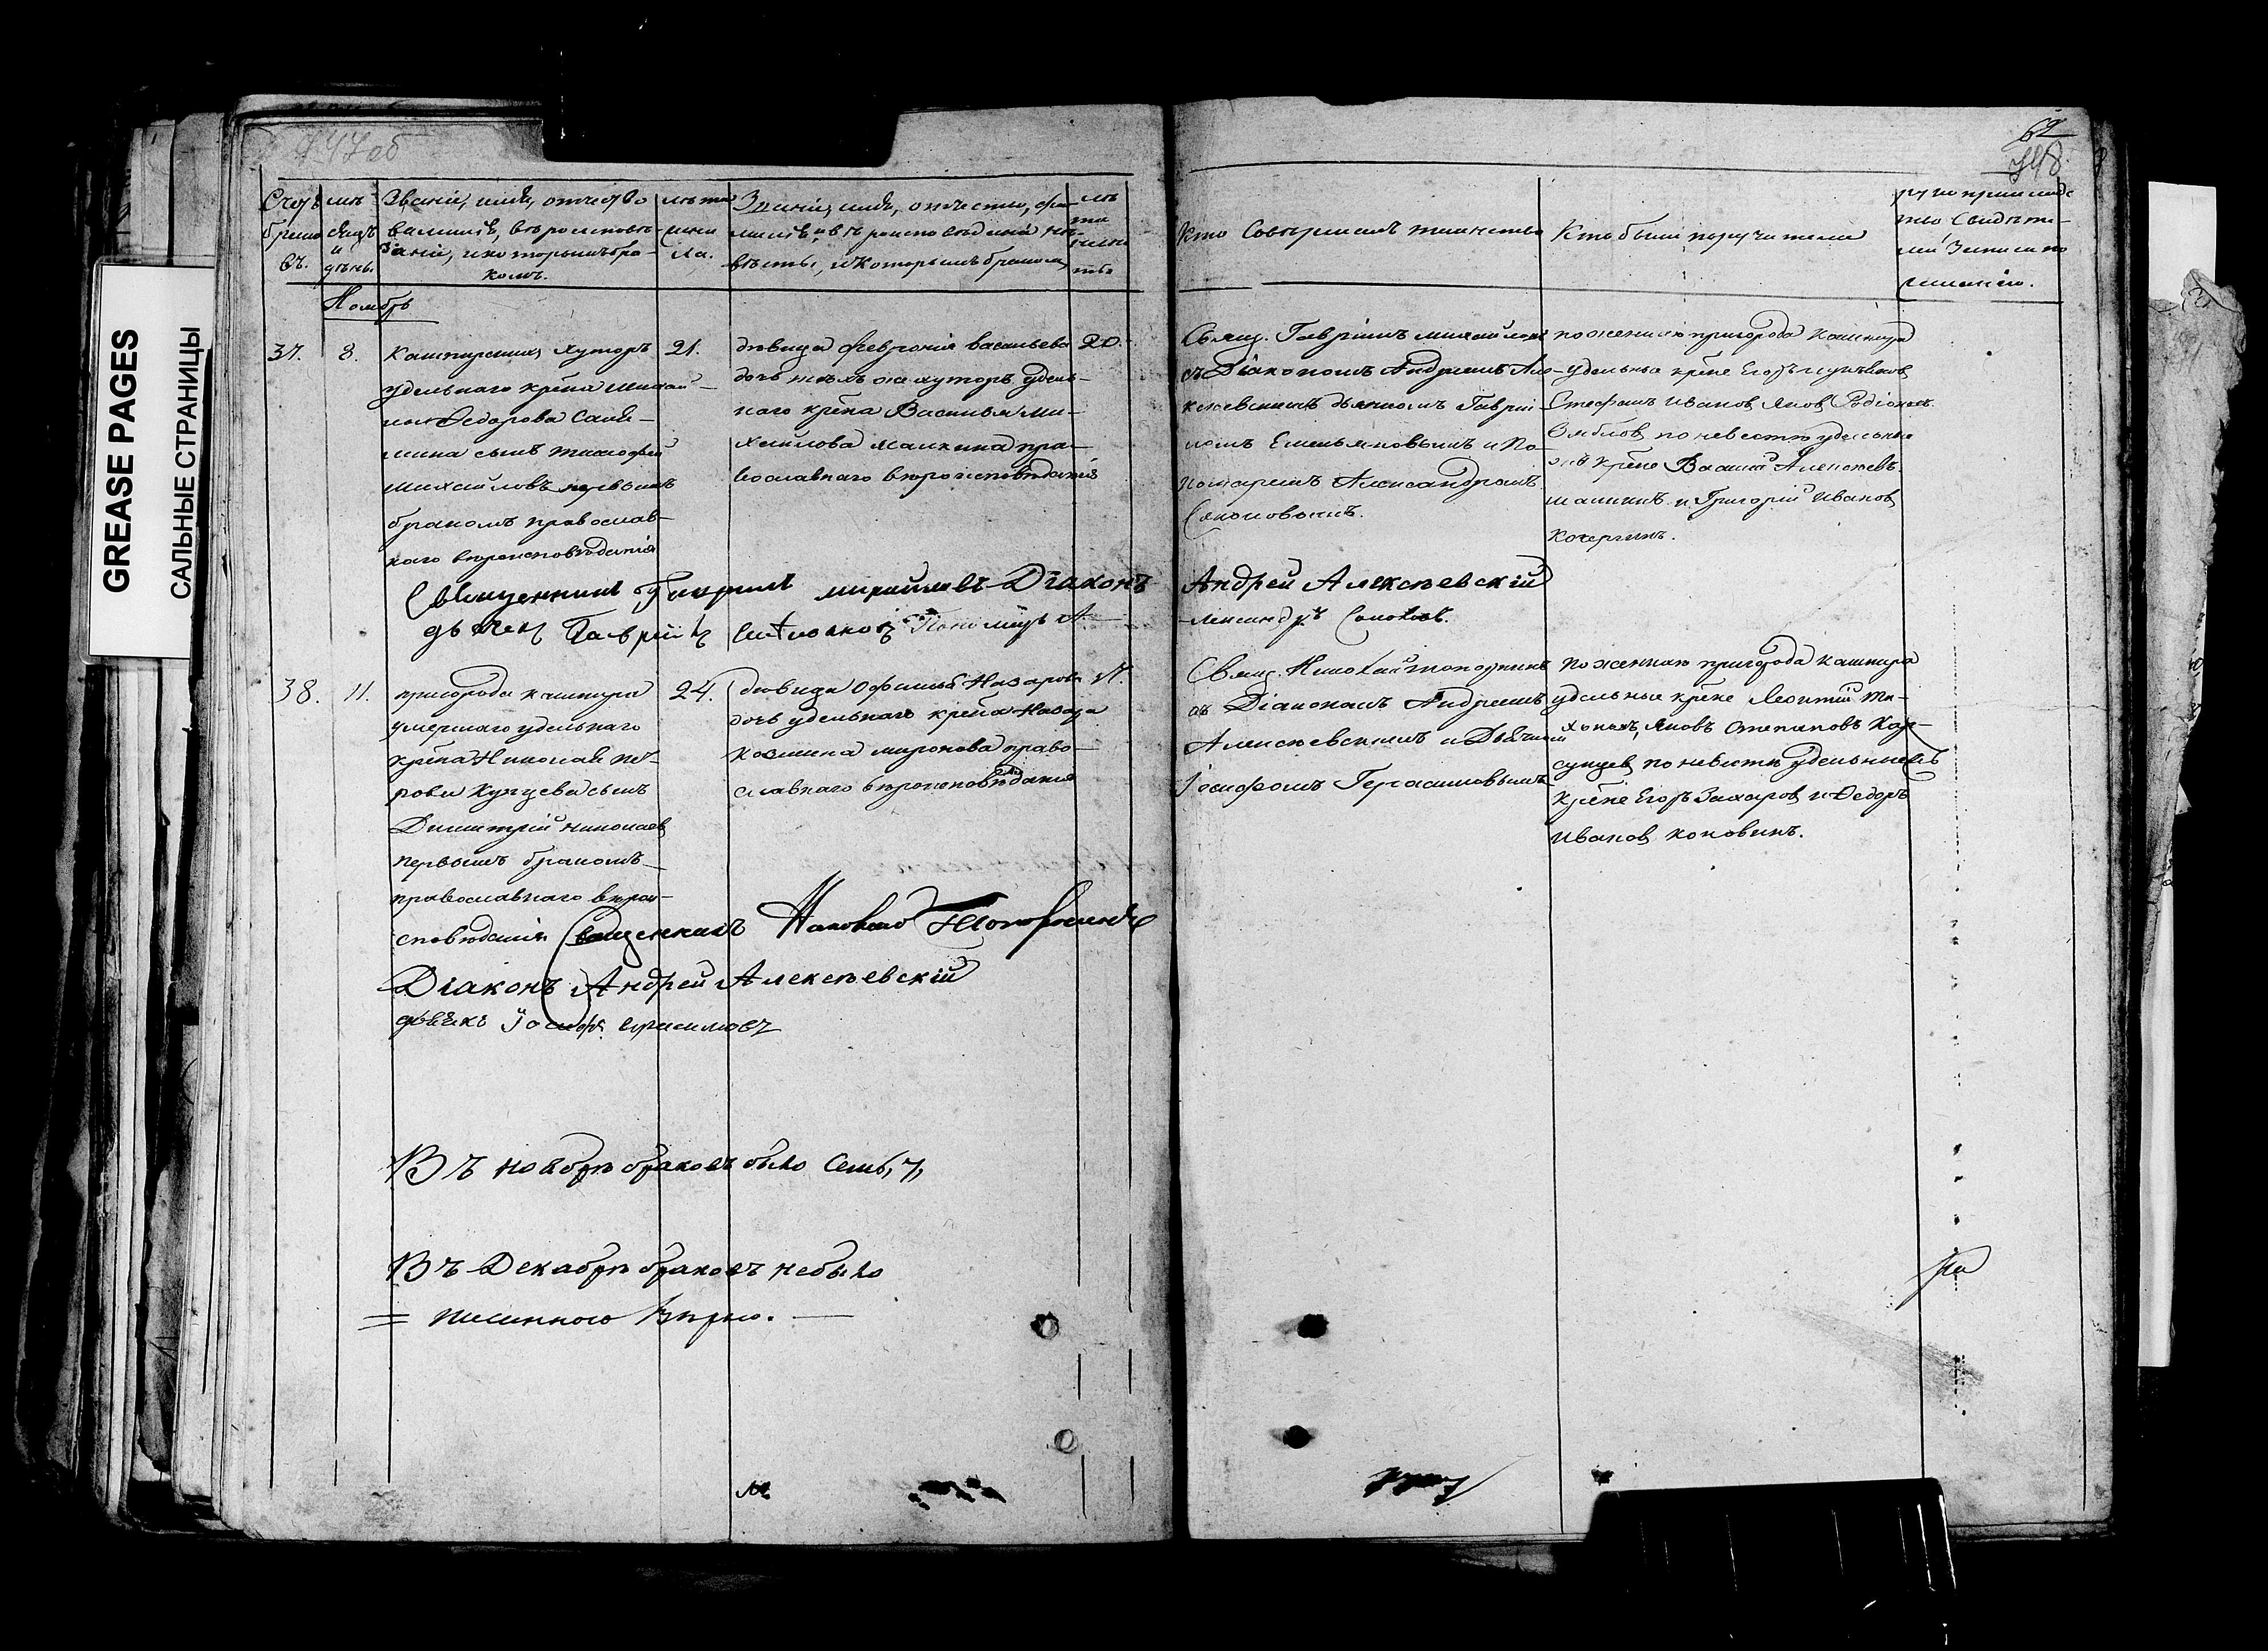 GREASE PAGES
САЛЬНЫЕ СТРАНИЦЫ
747об
62
748.
Счетъ браковъ.
мѣсяцъ и день.
Званiе, имя, отчество
фамилiя, вѣроисповѣ-
данiе, и которымъ бра-
комъ.
лѣта жениха.
Званiе, имя, отчество, фа-
милiя и вѣроисповѣданiе не-
вѣсты, и которымъ бракомъ
лѣта невѣсты
Кто совершалъ таинство
Кто были поручители
Ноябрь
37.
8.
Кашпирскихъ хуторъ
удельнаго крѣна Михаи-
ла Федорова
сынъ Тимофей
Михайловъ первымъ
бракомъ православ-
наго вѣроисповѣданiя
21.
дѣвица Феврония Васильева
дочь тѣхъ же хуторъ удель-
наго крѣна Василья Ми-
хайлова Малкина пра-
вославнаго вѣроисповѣданiя
20.
Свящ. Гаврiилъ Михайловъ
съ Дiакономъ Андреемъ Але-
ксѣевскимъ дьячкомъ Гаврiи-
ломъ Емельяновымъ и По-
номаремъ Александромъ
по женихѣ пригорода Кашпира
удельные крѣне Егоръ
Стефанъ Иванов, Яков Родiонов
по невестѣ удельные
крѣне Василiй Алексѣевъ
Малкинъ и Григорiй Иванов
Кочергинъ.
Священникъ Гаврiилъ Михайловъ Дiаконъ Андрей Алексѣевскiй
дьячекъ Гаврiилъ Пономарь А-
лександръ
38.
11.
пригорода Кашпира
умершаго удельнаго
крѣна Николая Пет-
рова Купцева сынъ
Димитрiй Николаев
первымъ бракомъ
православнаго вѣрои-
сповѣданiя
24.
дѣвица Офимья Назарова
дочь удельнаго крѣна Назара
Козмина Миронова право-
славнаго вѣроисповѣданiя
Свящ. Николай
съ Дiакономъ Андреемъ
Алексѣевскимъ и Дьячкомъ
Iосифомъ Герасимовымъ
по женихѣ пригорода Кашпира
удельные крѣне Леонтiй Ти-
хонов, Яковъ Степановъ Кар-
сунцев, по невестѣ удельные
крѣне Егоръ Захаров и Федоръ
Иванов Коновинъ.
Священникъ
Дiаконъ Андрей Алексѣевскiй
дьячекъ Iосифъ Герасимовъ
Въ ноябрѣ браковъ было семь, 7,
Въ Декабрѣ браковъ не было